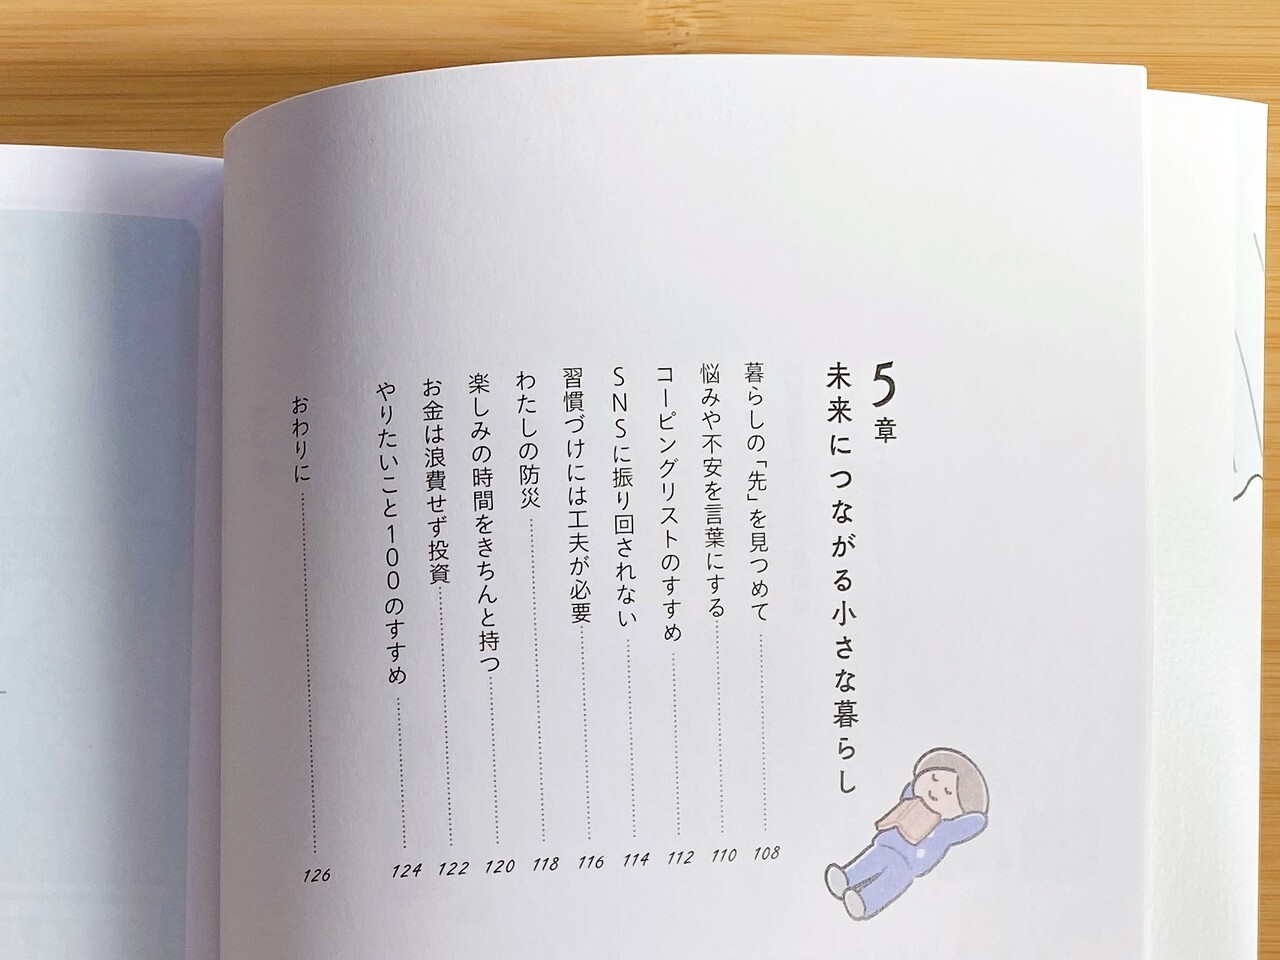 5章
未来につながる小さな暮らし
暮らしの「先」を見つめて 108
悩みや不安を言葉にする 110
コーピングリストのすすめ 112
SNSに振り回されない 114
習慣づけには工夫が必要 116
わたしの防災 118
楽しみの時間をきちんと持つ 120
お金は浪費せず投資 122
やりたいこと100のすすめ 124
おわりに 126